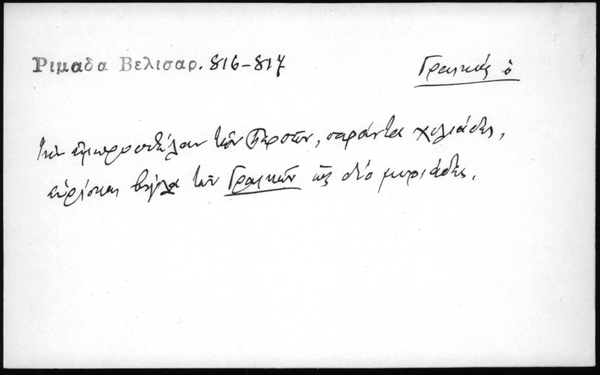 Ριμαδα Βελισαρ. 816-817
Γραικός ὁ
τὴν ἐμπροστέλαν τῶν Περσῶν, σαράντα χιλιάδες,
εὑρίσκει βίγλα τῶν Γραικῶν ὡς δύο μυριάδες.